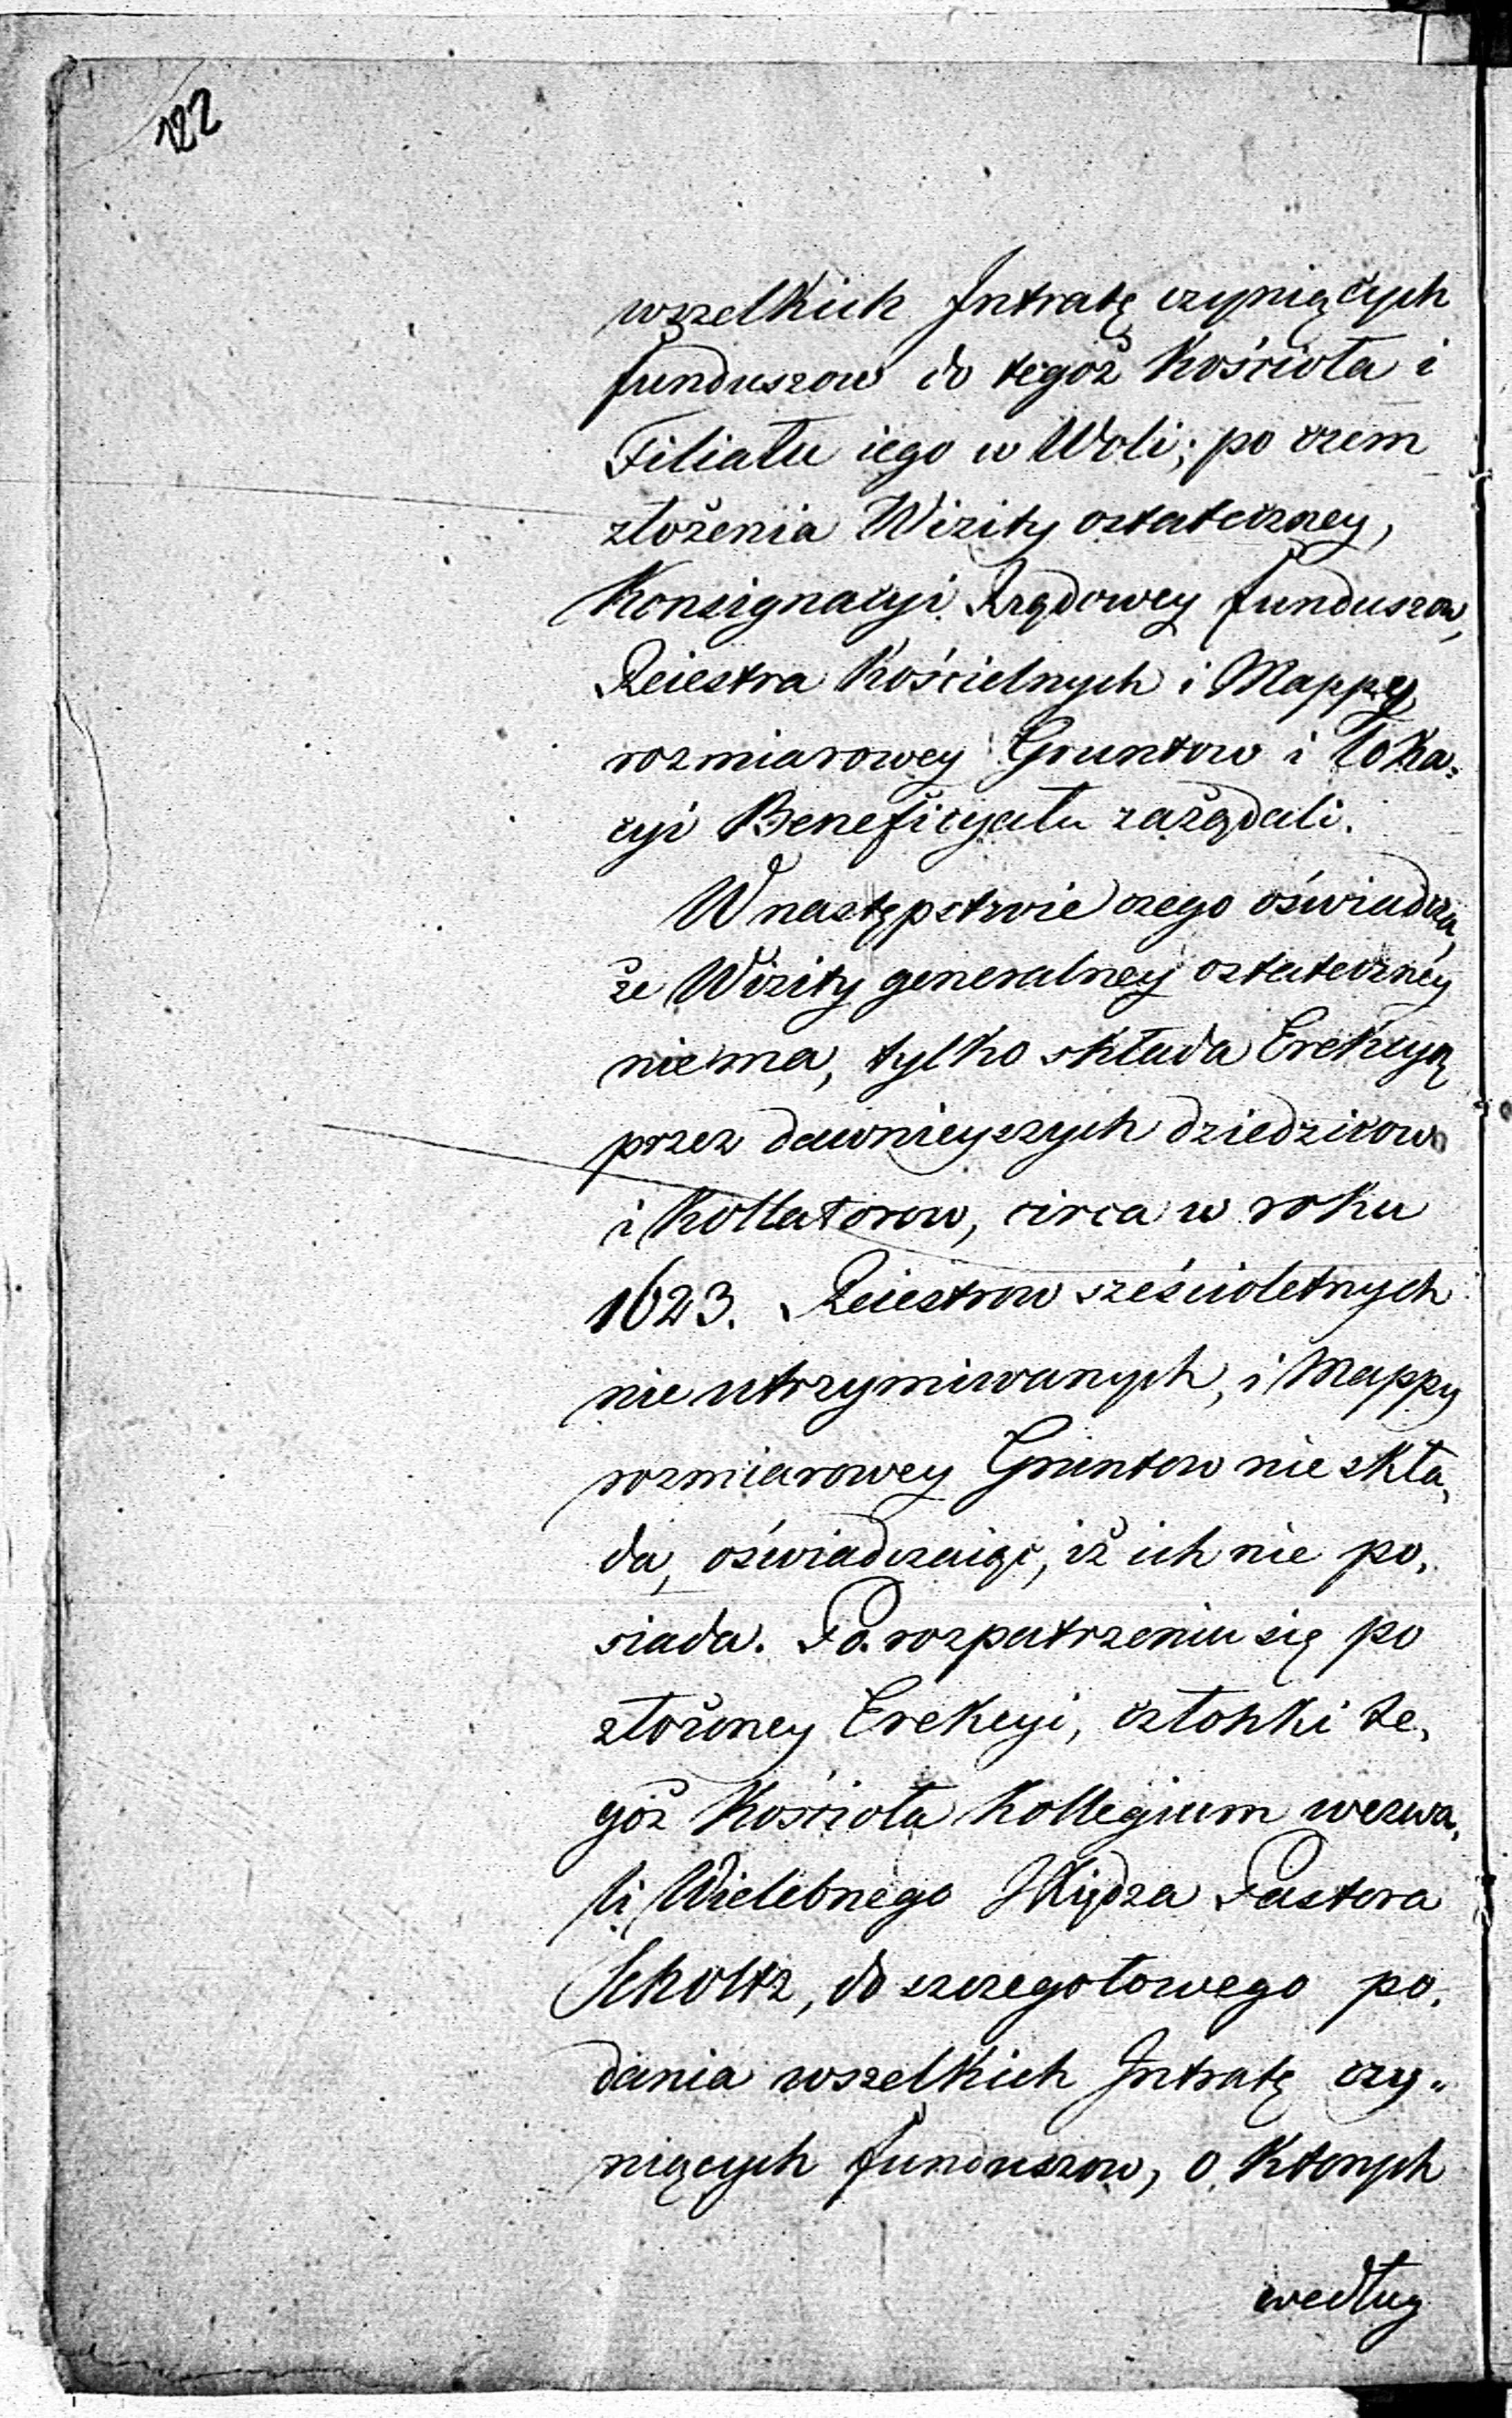 122
wszelkich Intratę czyniących
funduszow do tegoż Kościoła i
Filiału iego w Woli; po czem
złożenia Wizity ostateczney,
Konsignacyi Rządowey funduszow,
Reiestra Kościelnych i Mappy
rozmiarowey Gruntow i loka=
cyi Beneficyału zażądali.
W następstwie czego oświadcza,
że Wizity generalney ostateczney
niema, tylko składa Erekcyą
przez dawnieyszych dziedzicow
i Kollatorow, circa w roku
1623. Reiestrow sześcioletnych
nie utrzymiwanych, i Mappy
rozmiarowey Gruntow nie skła,
da, oświadczaiąc, iż ich nie po,
siada. Po rozpatrzeniu się po
złożoney Erekcyi, członki te,
goż Kościoła Kollegium wezwa,
li Wielebnego JXiędza Pastora
Scholtz, do szczegołowego po,
dania wszelkich Intratę czy„
niących funduszow, o ktorych
według